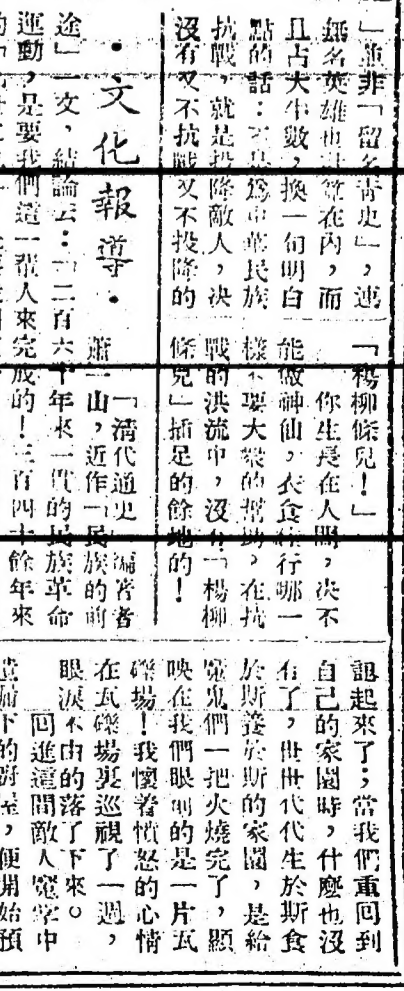 」並非「留名青史」,連
無名英雄也計算在內,而
且占大半數,換一句明白
點的話:不是爲中華民族
抗戰,就是投降敵人,決
沒有又不抗戰又不投降的
「楊柳條兒!」
你生長在人間,決不
能做神仙,衣食住行哪一
樣不要大衆的幫助,在抗
戰的洪流中,沒有「楊柳
條兒」插足的餘地的!
・文化報導・
「清代通史」編著者
蕭一山,近作「民族的前
途」一文,結論云:「二百六十年來一貫的民族革命
運動,是要我們這一輩人來完成的!三百四十餘年來
詛起來了;當我們重回到
自己的家園時,什麼也沒
有了,世世代代生於斯食
於斯養於斯的家園,是給
魔鬼們一把火燒完了,顯
映在我們眼前的是一片瓦
礫場!我懷着憤怒的心情
在瓦礫場裏巡視了一週,
眼淚不由的落了下來。
回進這間敵人魔掌中
遺漏下的廚屋,便開始預